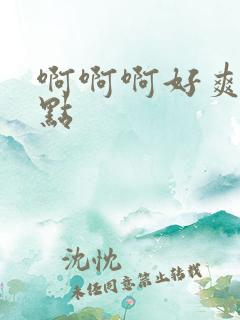 啊啊啊好爽
點
沈忱
未经同意禁止转载